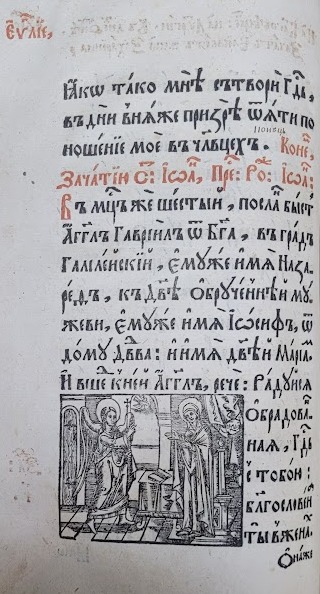 ЕѴ҃ЛІЕ,
Ꙗкѡ тако мнѣ сътвори Гд҃ь,
въ дни вняже призрѣ ѿяти по
ношеніе мое въ чл҃вцехъ. Коне҃,
Зачатїи С: Іѡа҃, Пре҃: Ро҃: Іѡа҃:
Въ мц҃ъ же шестый, посла́ бы́ст
А́гг҃лъ Гавріилъ ѿ Бг҃а, въ градъ
Галілейскїй, емуже имя Наза,
редъ, къ дв҃ѣ обрученнѣй му,
жеви, емуже имя Іѡсифъ, ѿ
дому Дв҃ва: и имя дв҃ѣй Марїа҃.
И вше҃ к ней А́гг҃лъ, рече: Радуйся
Обрадова,
ная, Гд҃ь
с тобою:
благословен
ты в жена҃.
Онаже